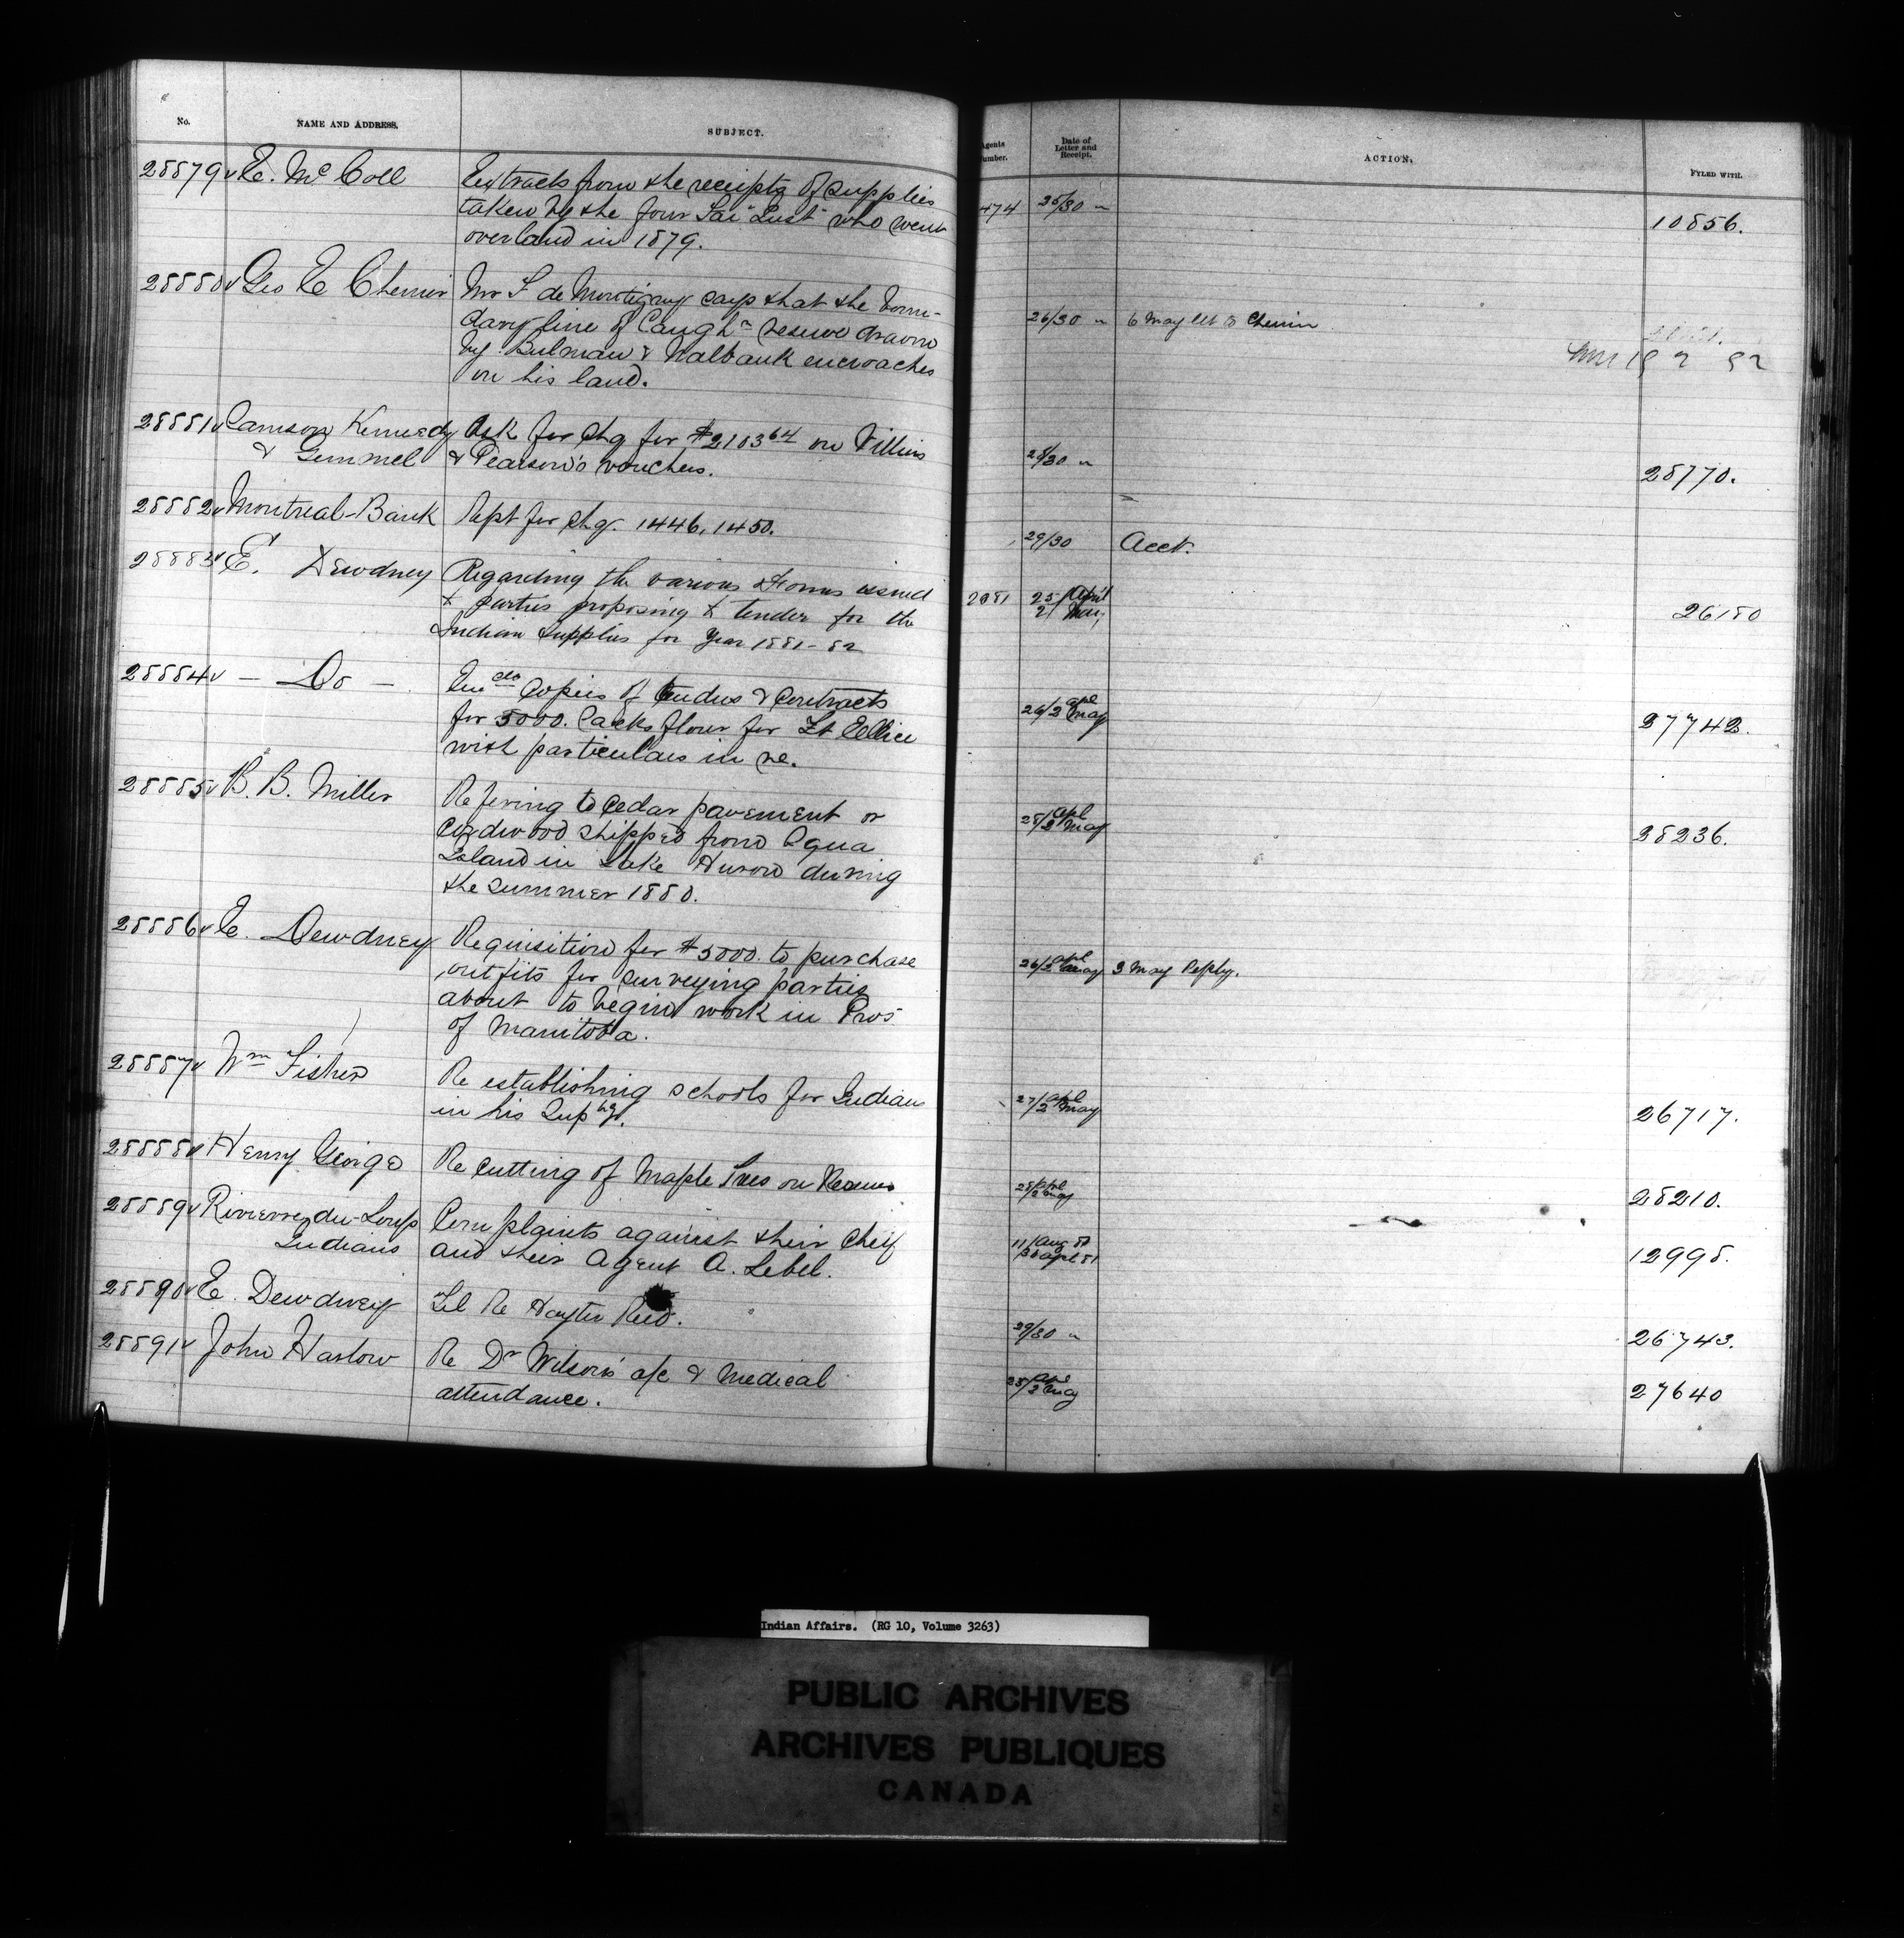 No. NAME AND ADDRESS. SUBJECT. Agents Number. Date of Letter and Receipt. ACTION. FYLED WITH.
28879 E. McColl Extracts from the receipts of supplies 474 25/30 " 10856.
taken by the four who went
overland in 1879.
28880 Geo E Cherrier Mr F de Montigny says that the boun- 26/30 " 6 May let to Cherrier
dary line of Caugha reserve drawn
by Bulman & Walbank encroaches
on his land.
28881 Samson Kennedy Ask for chq for $2183 64 on 28/30 " 28770.
& Gemmel & Pearson's vouchers.
28882 Montreal Bank Rept for chq. 1446, 1450. 29/30 Acct.
28883 E. Dewdney Regarding the various Forms issued 2081 25/April 26180
to parties proposing to tender for the 2/May
Indian Supplies for Year 1881-82
28884 — Do — Encdo Copies of tenders & contracts 26/2 apl May 27742.
for 5000. Sacks flour for Ft Ellice
with particulars in re.
28885 B. B. Miller Refering to Cedar pavement or 25/2 apl May 28236.
Cordwood shipped from
Island in Lake Huron during
the summer 1880.
28886 E. Dewdney Requisition for $5000. to purchase 26/2 apl May 3 May Reply.
outfits for surveying parties
about to begin work in Prov
of Manitoba.
28887 Wm Fisher Re establishing schools for Indians 27/2 apl May 26717.
in his Supcy.
28888 Henry George Re Cutting of Maple Trees on Reserve 28/2 apl May 28210.
28889 Rivierre du Loup Complaints against their Cheif 11/Aug 80 12998.
Indians and their Agent A. Lebel. 30 apl 81
28890 E. Dewdney Tel Re Hayter Reed. 29/30 " 26743.
28891 John Harlow Re Dr Wilson's a/c & Medical 25/2 apl May 27640
attendance.
Indian Affairs. (RG 10, Volume 3263)
PUBLIC ARCHIVES
ARCHIVES PUBLIQUES
CANADA